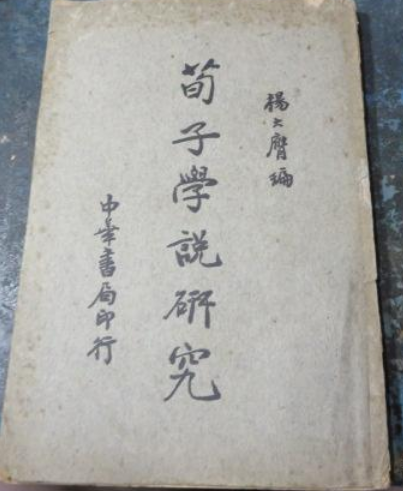 楊大膺編
荀子學說研究
中華書局印行